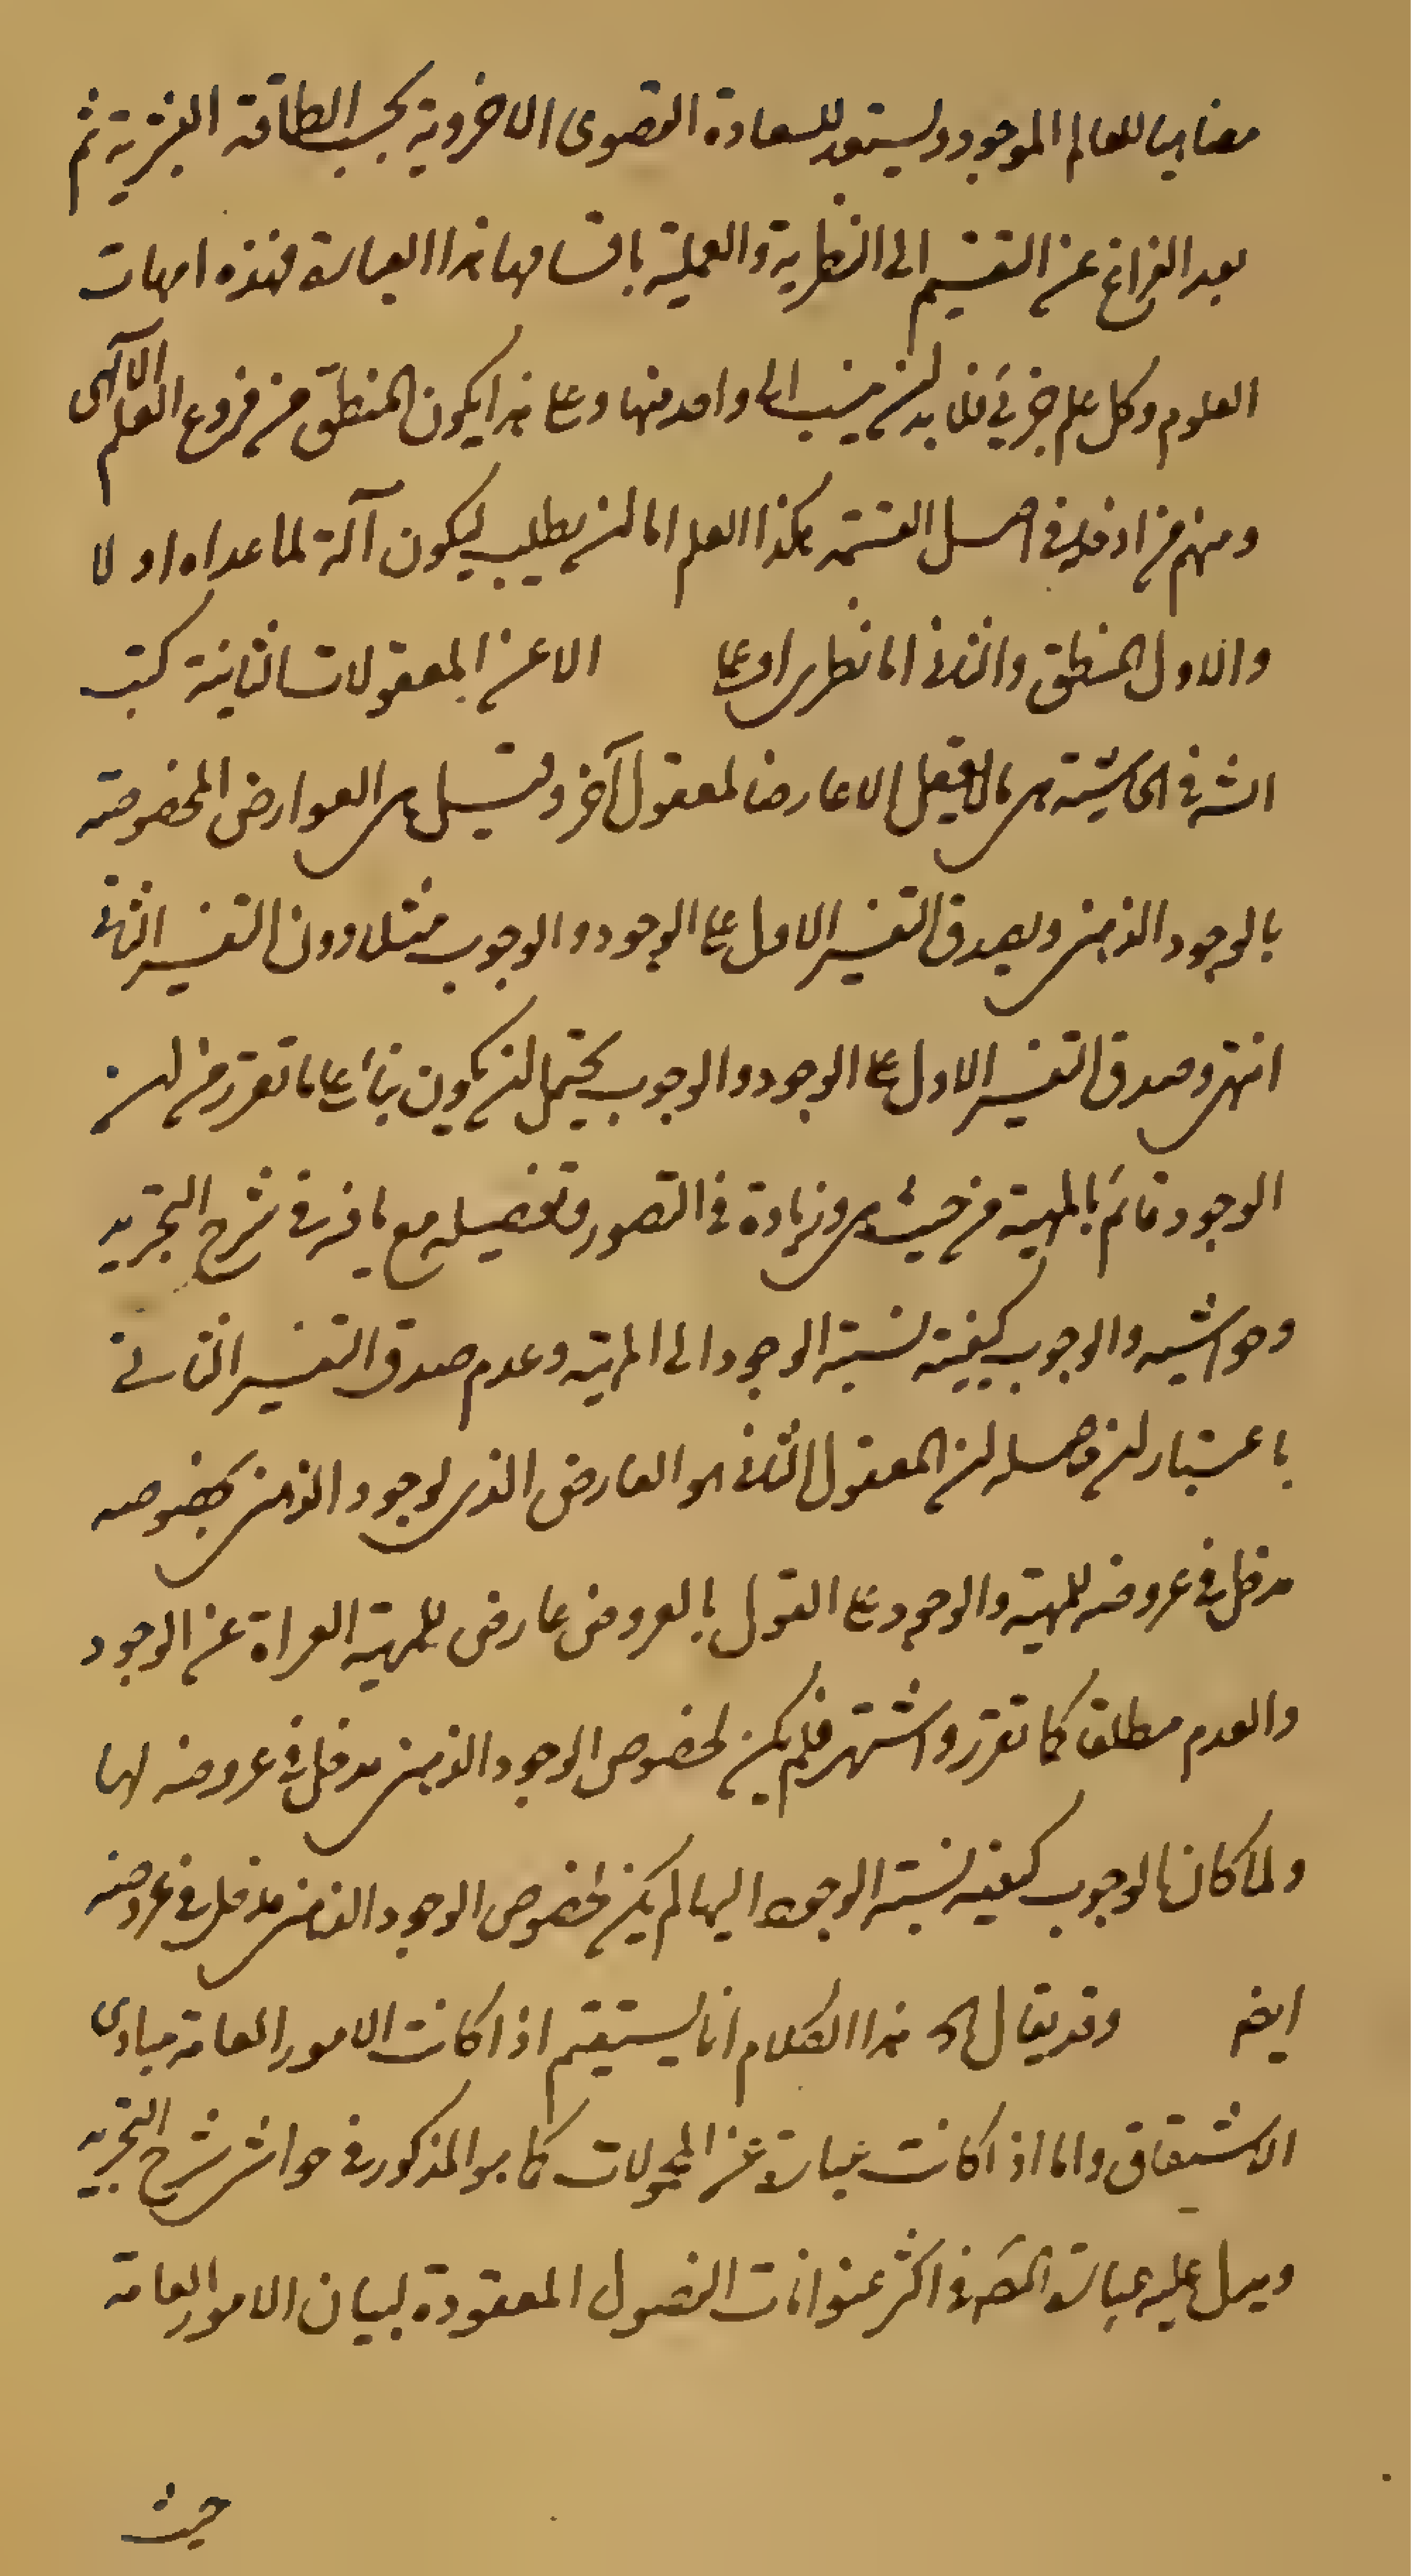 مضاهيا للعالم الموجود وليستعد للسعادة القصوى الاخروية بحسب الطاقة البشرية ثم
بعد الفراغ عن التقسيم الى النظرية والعملية باقسامها هذا العبارة فهذه امهات
العلوم وكل علم جزئي فلا بد ان ينسب الى واحد منها وعلى هذا يكون المنطق من فروع العلم الالهى
ومنهم من ادخله في اصل القسمة هكذا العلم اما ان يطلب ليكون آلة لما عداه او لا
والاول المنطق والثانى اما نظرى او عملى الا عن المعقولات الثانية كتب
الش فى الحاشية هى ما لا يعقل الا عارضا لمعقول آخر وقيل هى العوارض المخصوصة
بالوجود الذهنى ويصدق التفسير الاول على الوجود والوجوب مثلا دون التفسير الثانى
انتهى وصدق التفسير الاول على الوجود والوجوب يحتمل ان يكون بناء على ما تقرر من ان
الوجود قائم بالمهية من حيث هى وزيادة فى التصور وتفصيله مع ما فيه فى شرح التجريد
وحواشيه والوجوب كيفية نسبة الوجود الى المهية وعدم صدق التفسير الثانى
باعتبار ان حاصله ان المعقول الثانى هو العارض الذى لوجود الذهنى بخصوصه
مدخل فى عروضه للمهية والوجود على القول بالعروض عارض للمهية المعراة عن الوجود
والعدم مطلقا كما تقرر واشتهر فلم يكن لخصوص الوجود الذهنى مدخل فى عروضه لها
ولما كان الوجوب كيفية نسبة الوجود اليها لم يكن لخصوص الوجود الذهنى مدخل فى عروضه
ايضا وقد يقال هذا الكلام انما يستقيم اذا كانت الامور العامة مبادى
الاشتقاق واما اذا كانت عبارة عن المحمولات كما هو المذكور فى حواشى شرح التجريد
ويدل عليه عبارة المص فى اكثر عنوانات الفصول المعقودة لبيان الامور العامة
حيث